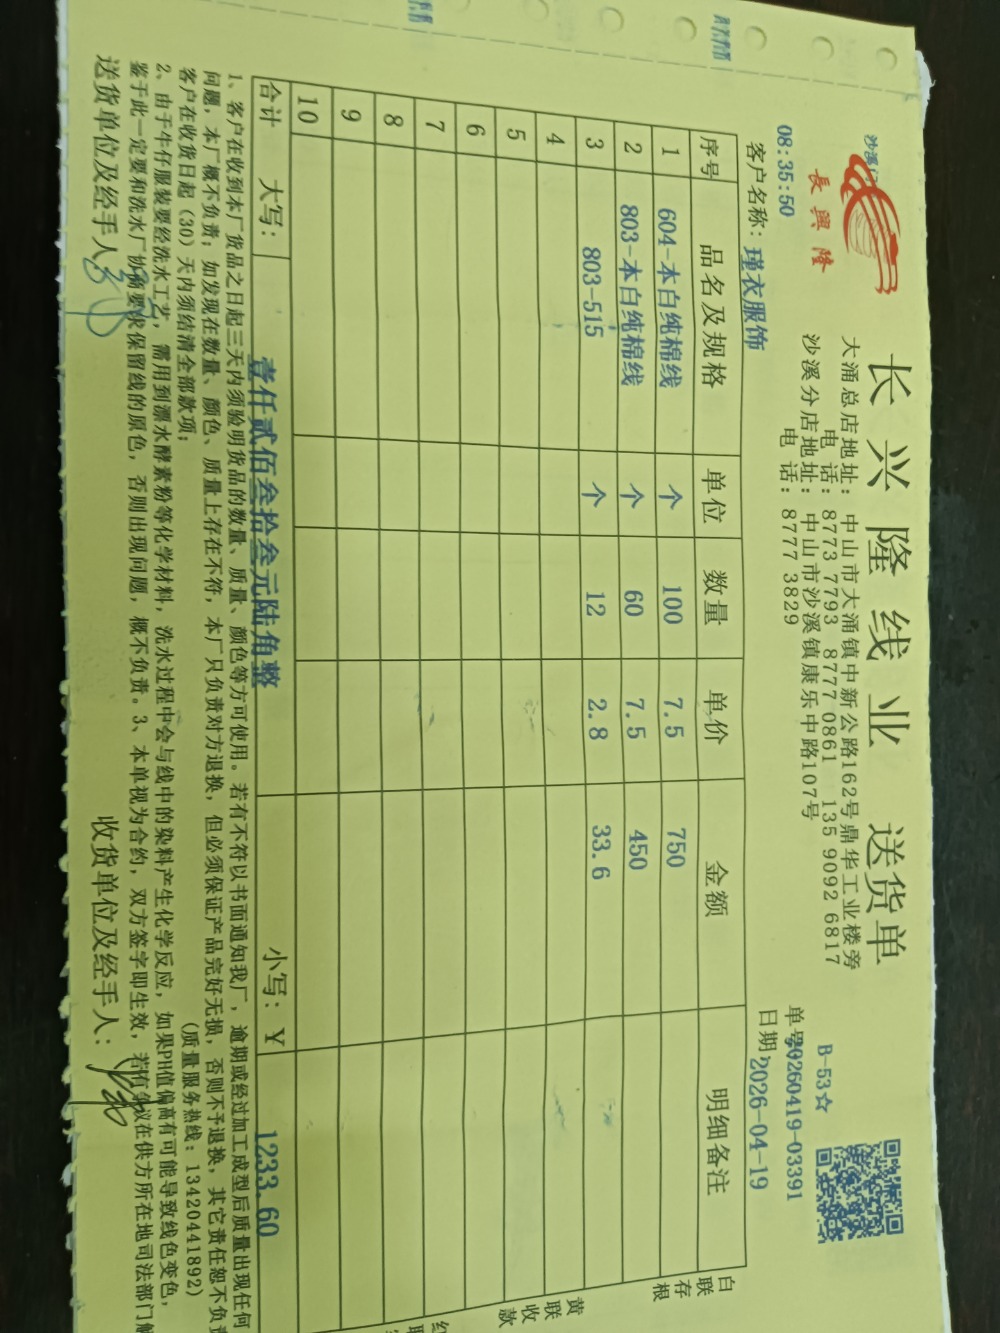 长兴隆线业 送货单
沙溪
長興隆
大涌总店地址：中山市大涌镇中新公路162号鼎华工业楼旁
电 话：8773 7793 8777 0861 135 9092 6817
沙溪分店地址：中山市沙溪镇康乐中路107号
电 话：8777 3829
B-53☆
08:35:50
单号:20260419-03391
客户名称：瑾衣服饰
日期:2026-04-19
序号 品名及规格 单位 数量 单价 金额 明细备注
1 604-本白纯棉线 个 100 7.5 750
2 803-本白纯棉线 个 60 7.5 450
3 803-515 个 12 2.8 33.6
4
5
6
7
8
9
10
合计 大写：壹仟贰佰叁拾叁元陆角整 小写：¥ 1233.60
白联存根
黄联收款
1、客户在收到本厂货品之日起三天内须验明货品的数量、质量、颜色等方可使用。若有不符以书面通知我厂，逾期或经过加工成型后质量出现任何
问题，本厂概不负责；如发现在数量、颜色、质量上存在不符，本厂只负责对方退换，但必须保证产品完好无损，否则不予退换，其它责任恕不负责
客户在收货日起（30）天内须结清全部款项； (质量服务热线：13420441892)
2、由于牛仔服装要经洗水工艺，需用到漂水酵素粉等化学材料，洗水过程中会与线中的染料产生化学反应，如果PH值偏高有可能导致线色变色，
鉴于此一定要和洗水厂协商要求保留线的原色，否则出现问题，概不负责。3、本单视为合约，双方签字即生效，若有争议在供方所在地司法部门解
送货单位及经手人： 收货单位及经手人：